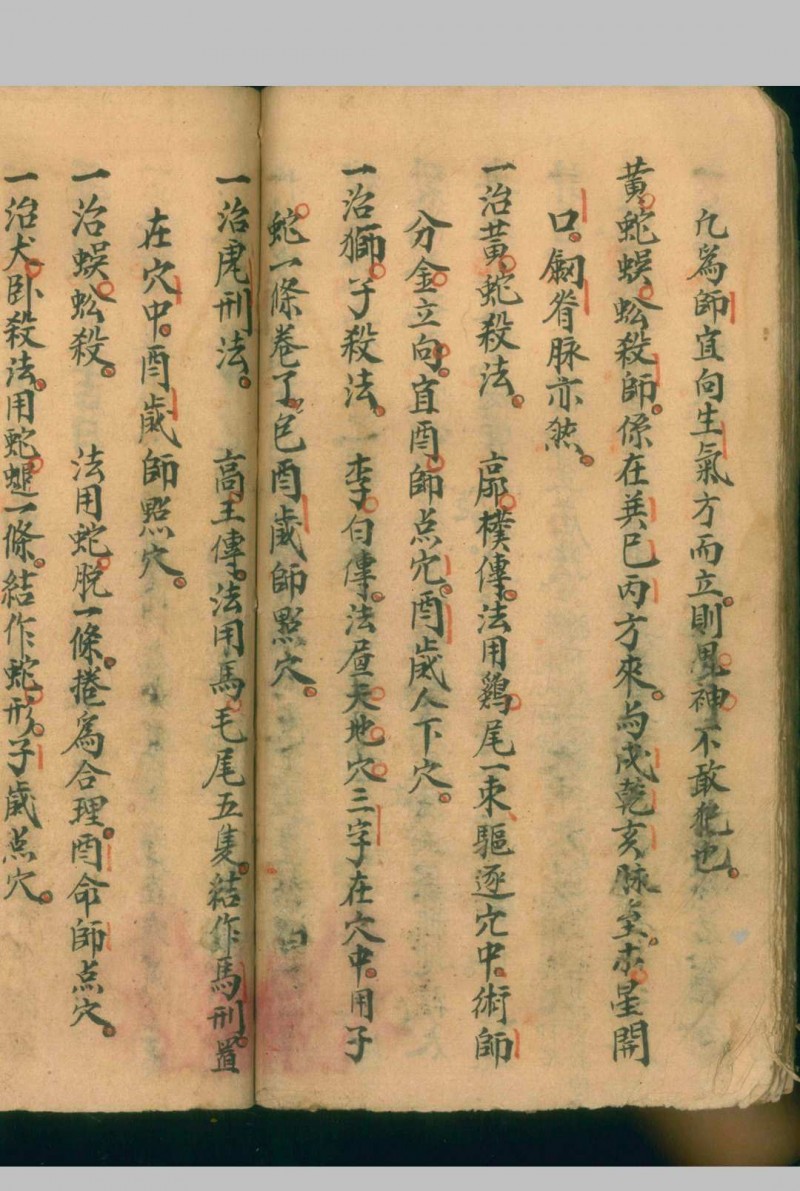 凢為師宜向生氣方而立則鬼神不敢犯也
黃蛇蜈蚣殺師係在巽巳丙方來為戌乾亥脉至木星開
口劒脊脉亦然
一治黃蛇殺法 廖樸傳法用鷄尾一束驅逐穴中術師
分金立向直酉師点穴酉歲人下穴
一治獅子殺法 李白傳法 天地穴三字在穴中用子
蛇一條卷了包酉歲師點穴
一治虎刑法 高王傳法用馬毛尾五隻結作馬刑置
在穴中酉歲師點穴
一治蜈蚣殺 法用蛇脫一條捲為合理酉命師点穴
一治犬卧殺法用蛇螁一條結作蛇形子歲点穴